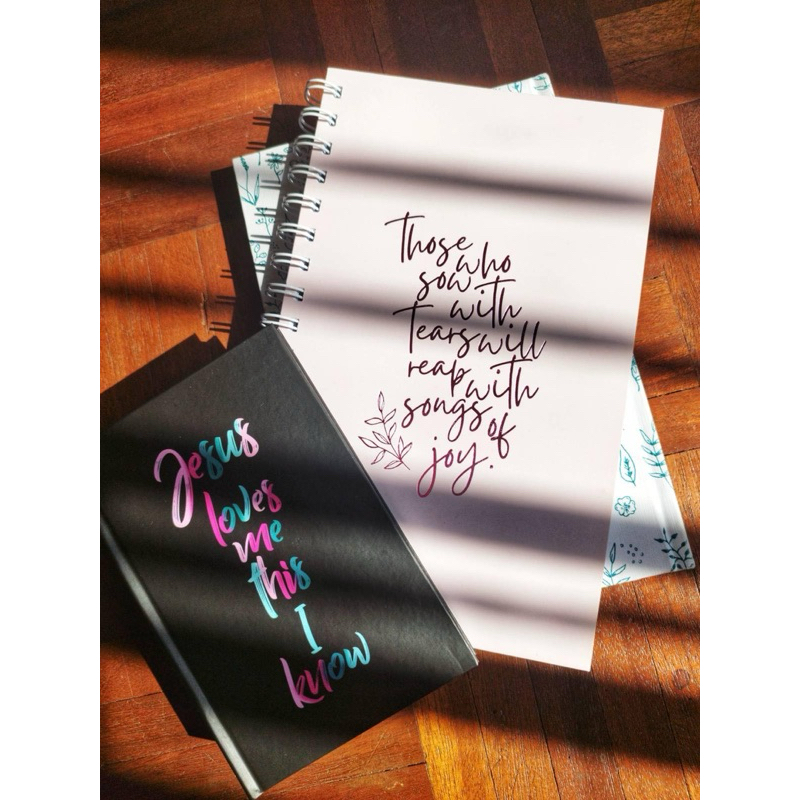 Those
who
sow
with
tears will
reap
with
songs
of
joy.
Jesus
loves
me
this
I
know